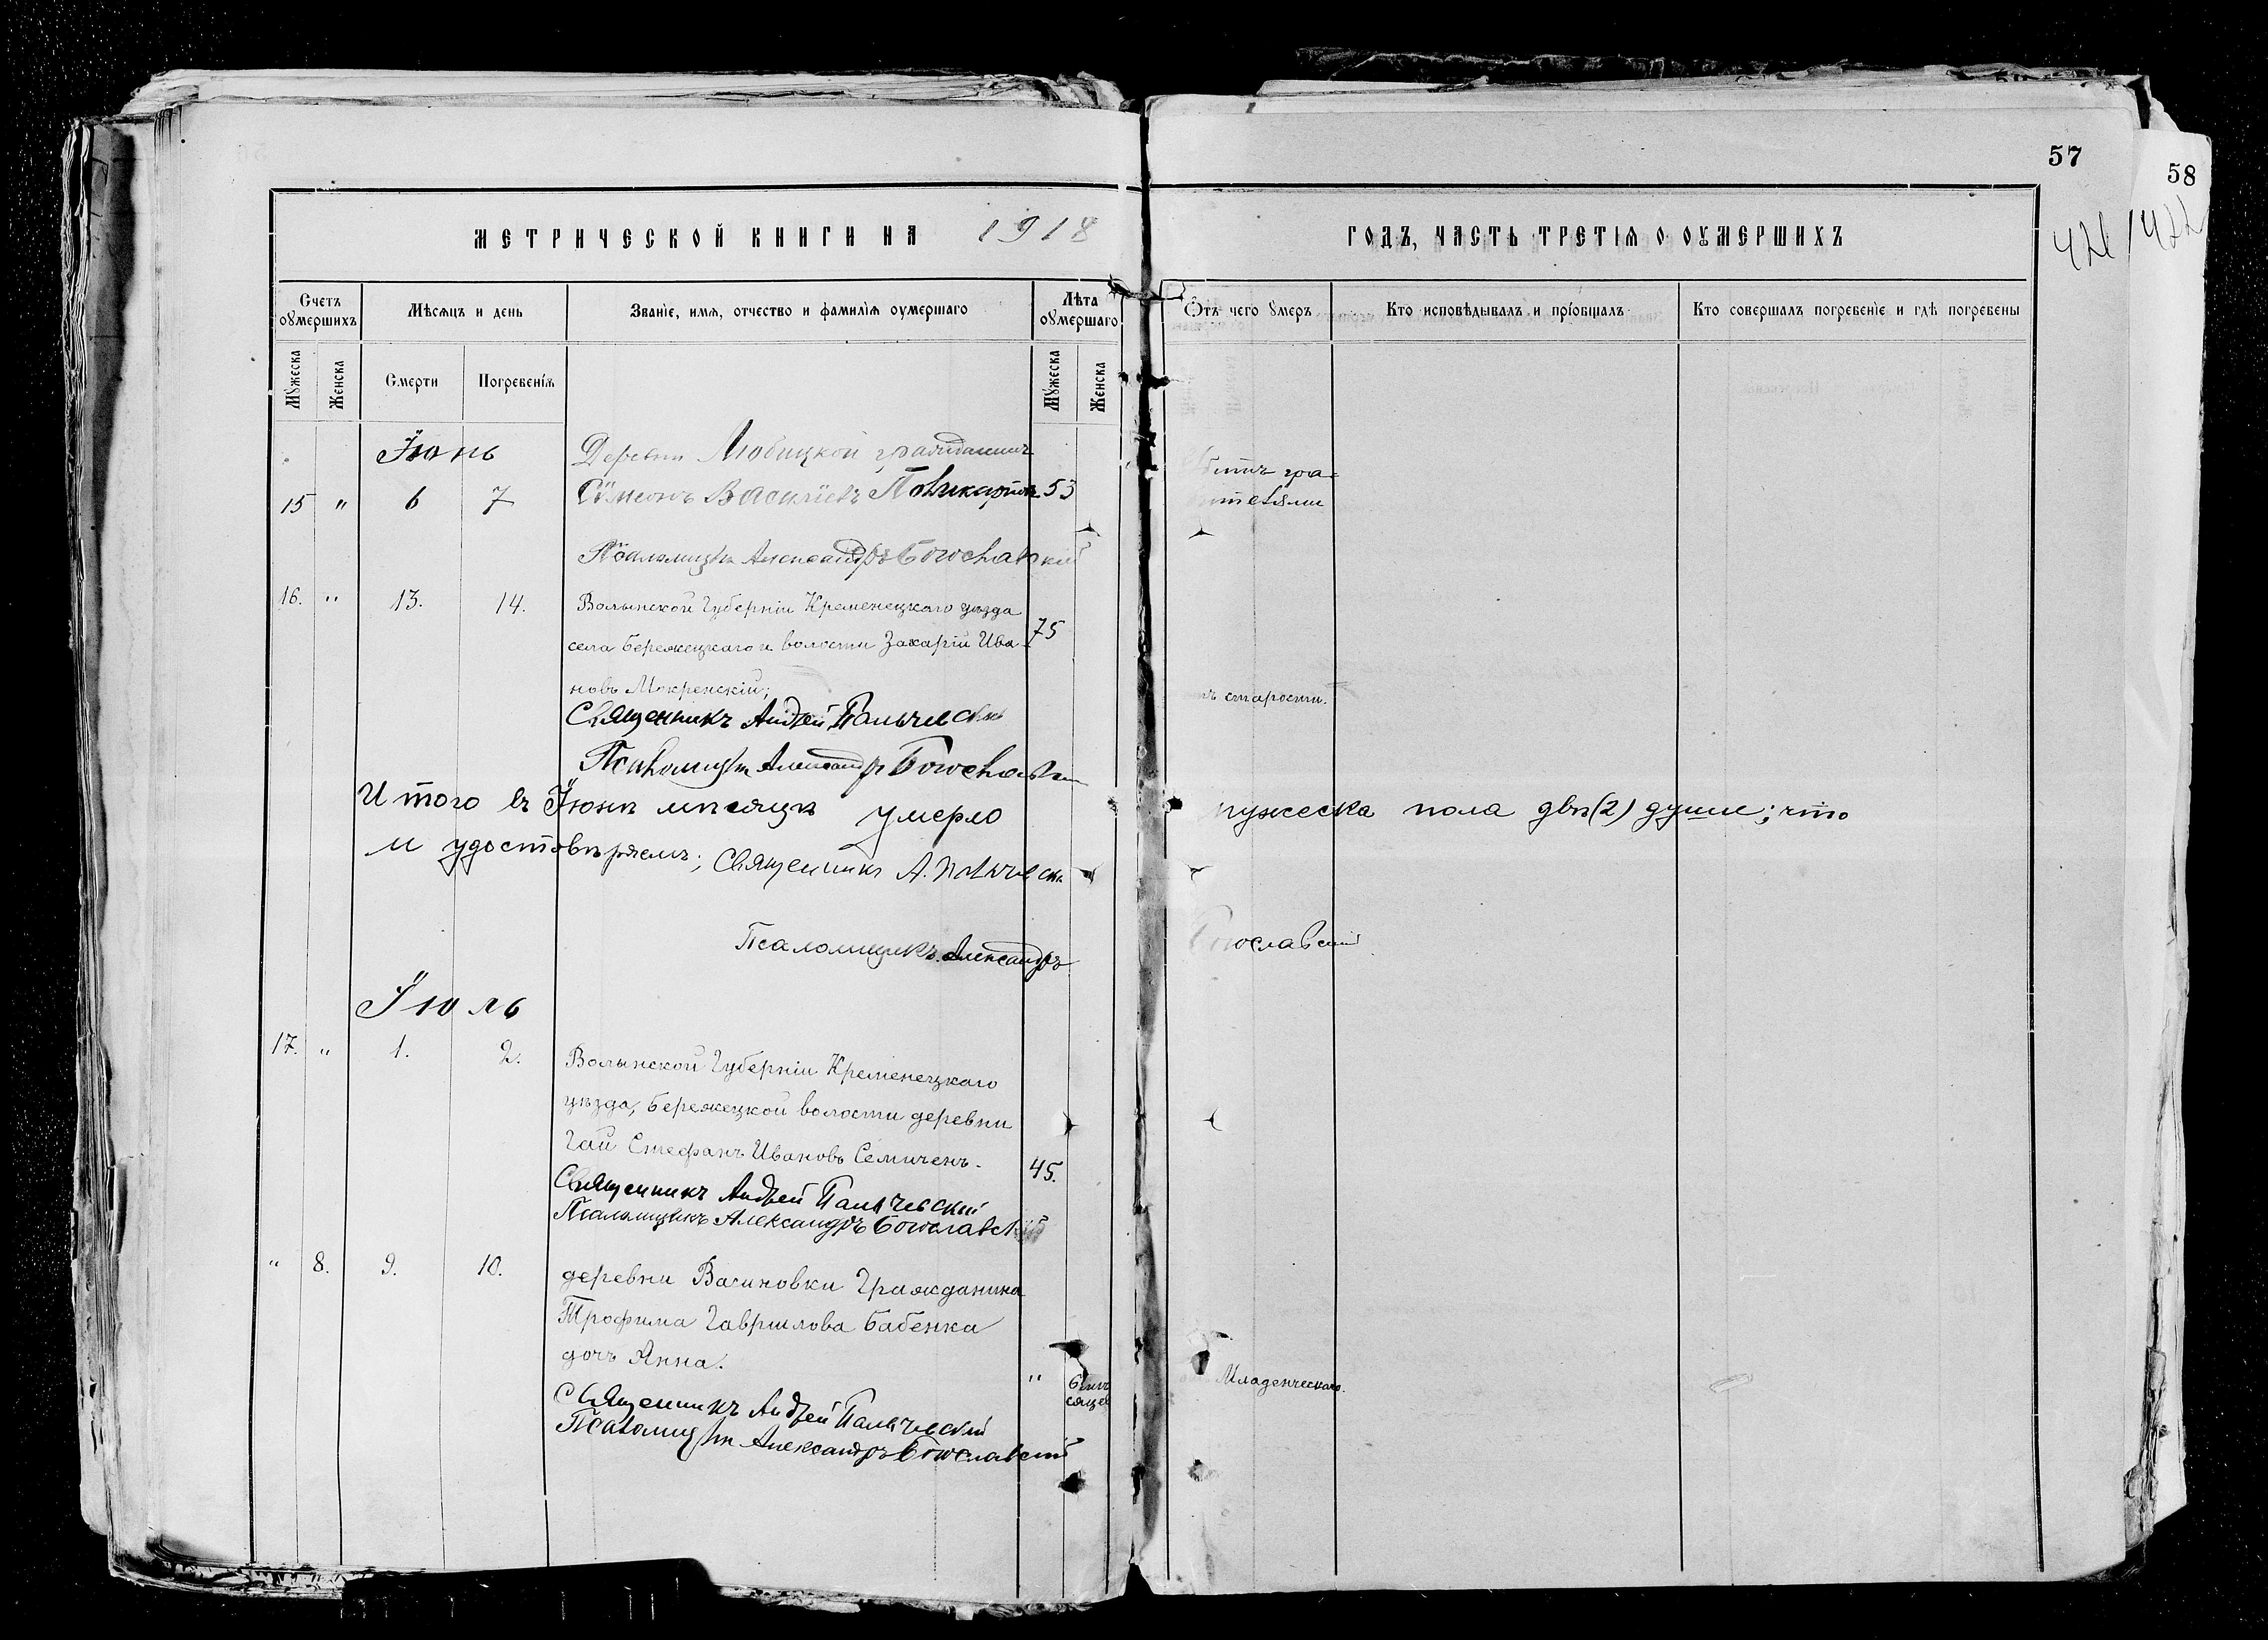 57
58
421
422
МЕТРИЧЕСКОЙ КНИГИ НА 1918 ГОДЪ, ЧАСТЬ ТРЕТІЯ О ОУМЕРШИХЪ
Счетъ оумершихъ
Мѣсяцъ и день
Званіе, имя, отчество и фамилія оумершаго
Лѣта оумершаго
Отъ чего умеръ
Кто исповѣдывалъ и пріобщалъ
Кто совершалъ погребеніе и гдѣ погребены
Мужеска Женска Смерти Погребенія Мужеска Женска
Іюнь Деревни Любицкой гражданинъ
15 " 6 7 Сѵмеонъ Василіевъ 53
Псаломщикъ Александръ Богославскій
16. " 13. 14. Волынской Губерніи Кременецкаго уѣзда
села Бережецкаго и волости Захарій Ива- 75
новъ Мокренскій; старости.
Священникъ Андрей
Псаломщикъ Александръ Богославскій
Итого въ Іюнѣ мѣсяцѣ умерло мужеска пола двѣ (2) души; что
и удостовѣряемъ; Священникъ А.
Псаломщикъ Александръ Богославскій
Іюль
17. " 1. 2. Волынской Губерніи Кременецкаго
уѣзда, Бережецкой волости деревни
Гаи Стефанъ Ивановъ Семиченъ. 45.
Священникъ Андрей
Псаломщикъ Александръ Богославскій
" 8. 9. 10. деревни Васиновки Гражданина
Трофима Гаврилова Бабенка
дочъ Анна. " 6 мѣ
сяцев Младенческаго.
Священникъ Андрей
Псаломщикъ Александръ Богославскій